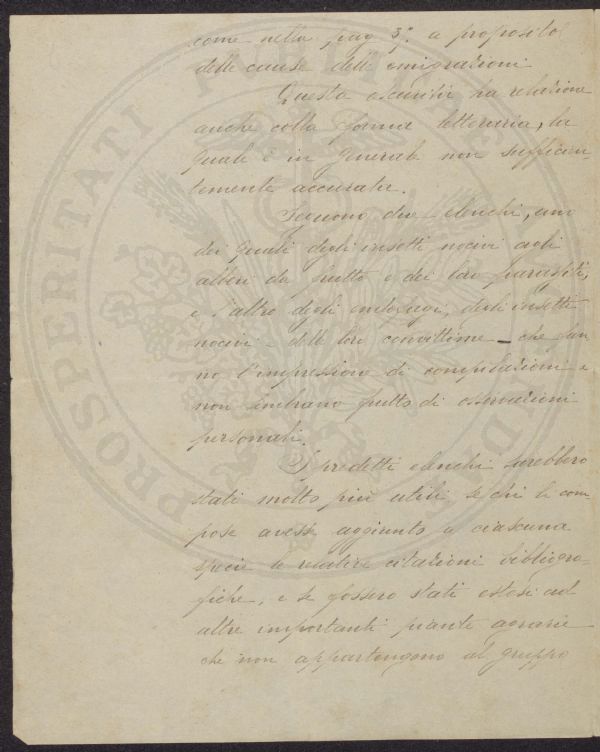 come nella pag. 3ª. a proposito
delle cause dell' emigrazioni
Questa oscurità ha relazione
anche colla forma letteraria, la
quale è in generale non sufficien-
temente accurata.
Seguono due elenchi, uno
dei quali degli insetti nocivi agli
alberi da frutto e dei loro parassiti,
e l'altro degli entofagi, degli insetti
nocivi e delle loro convittime - che fan-
no l'impressione di compilazioni e
non sembrano frutto di osservazioni
personali.
I predetti elenchi sarebbero
stati molto più utili se chi li com
pose avesse aggiunto a ciascuna
specie le relative citazioni bibliogra-
fiche, e se fossero stati estesi ad
altre importanti piante agrarie
che non appartengono al gruppo
PROSPERITATI